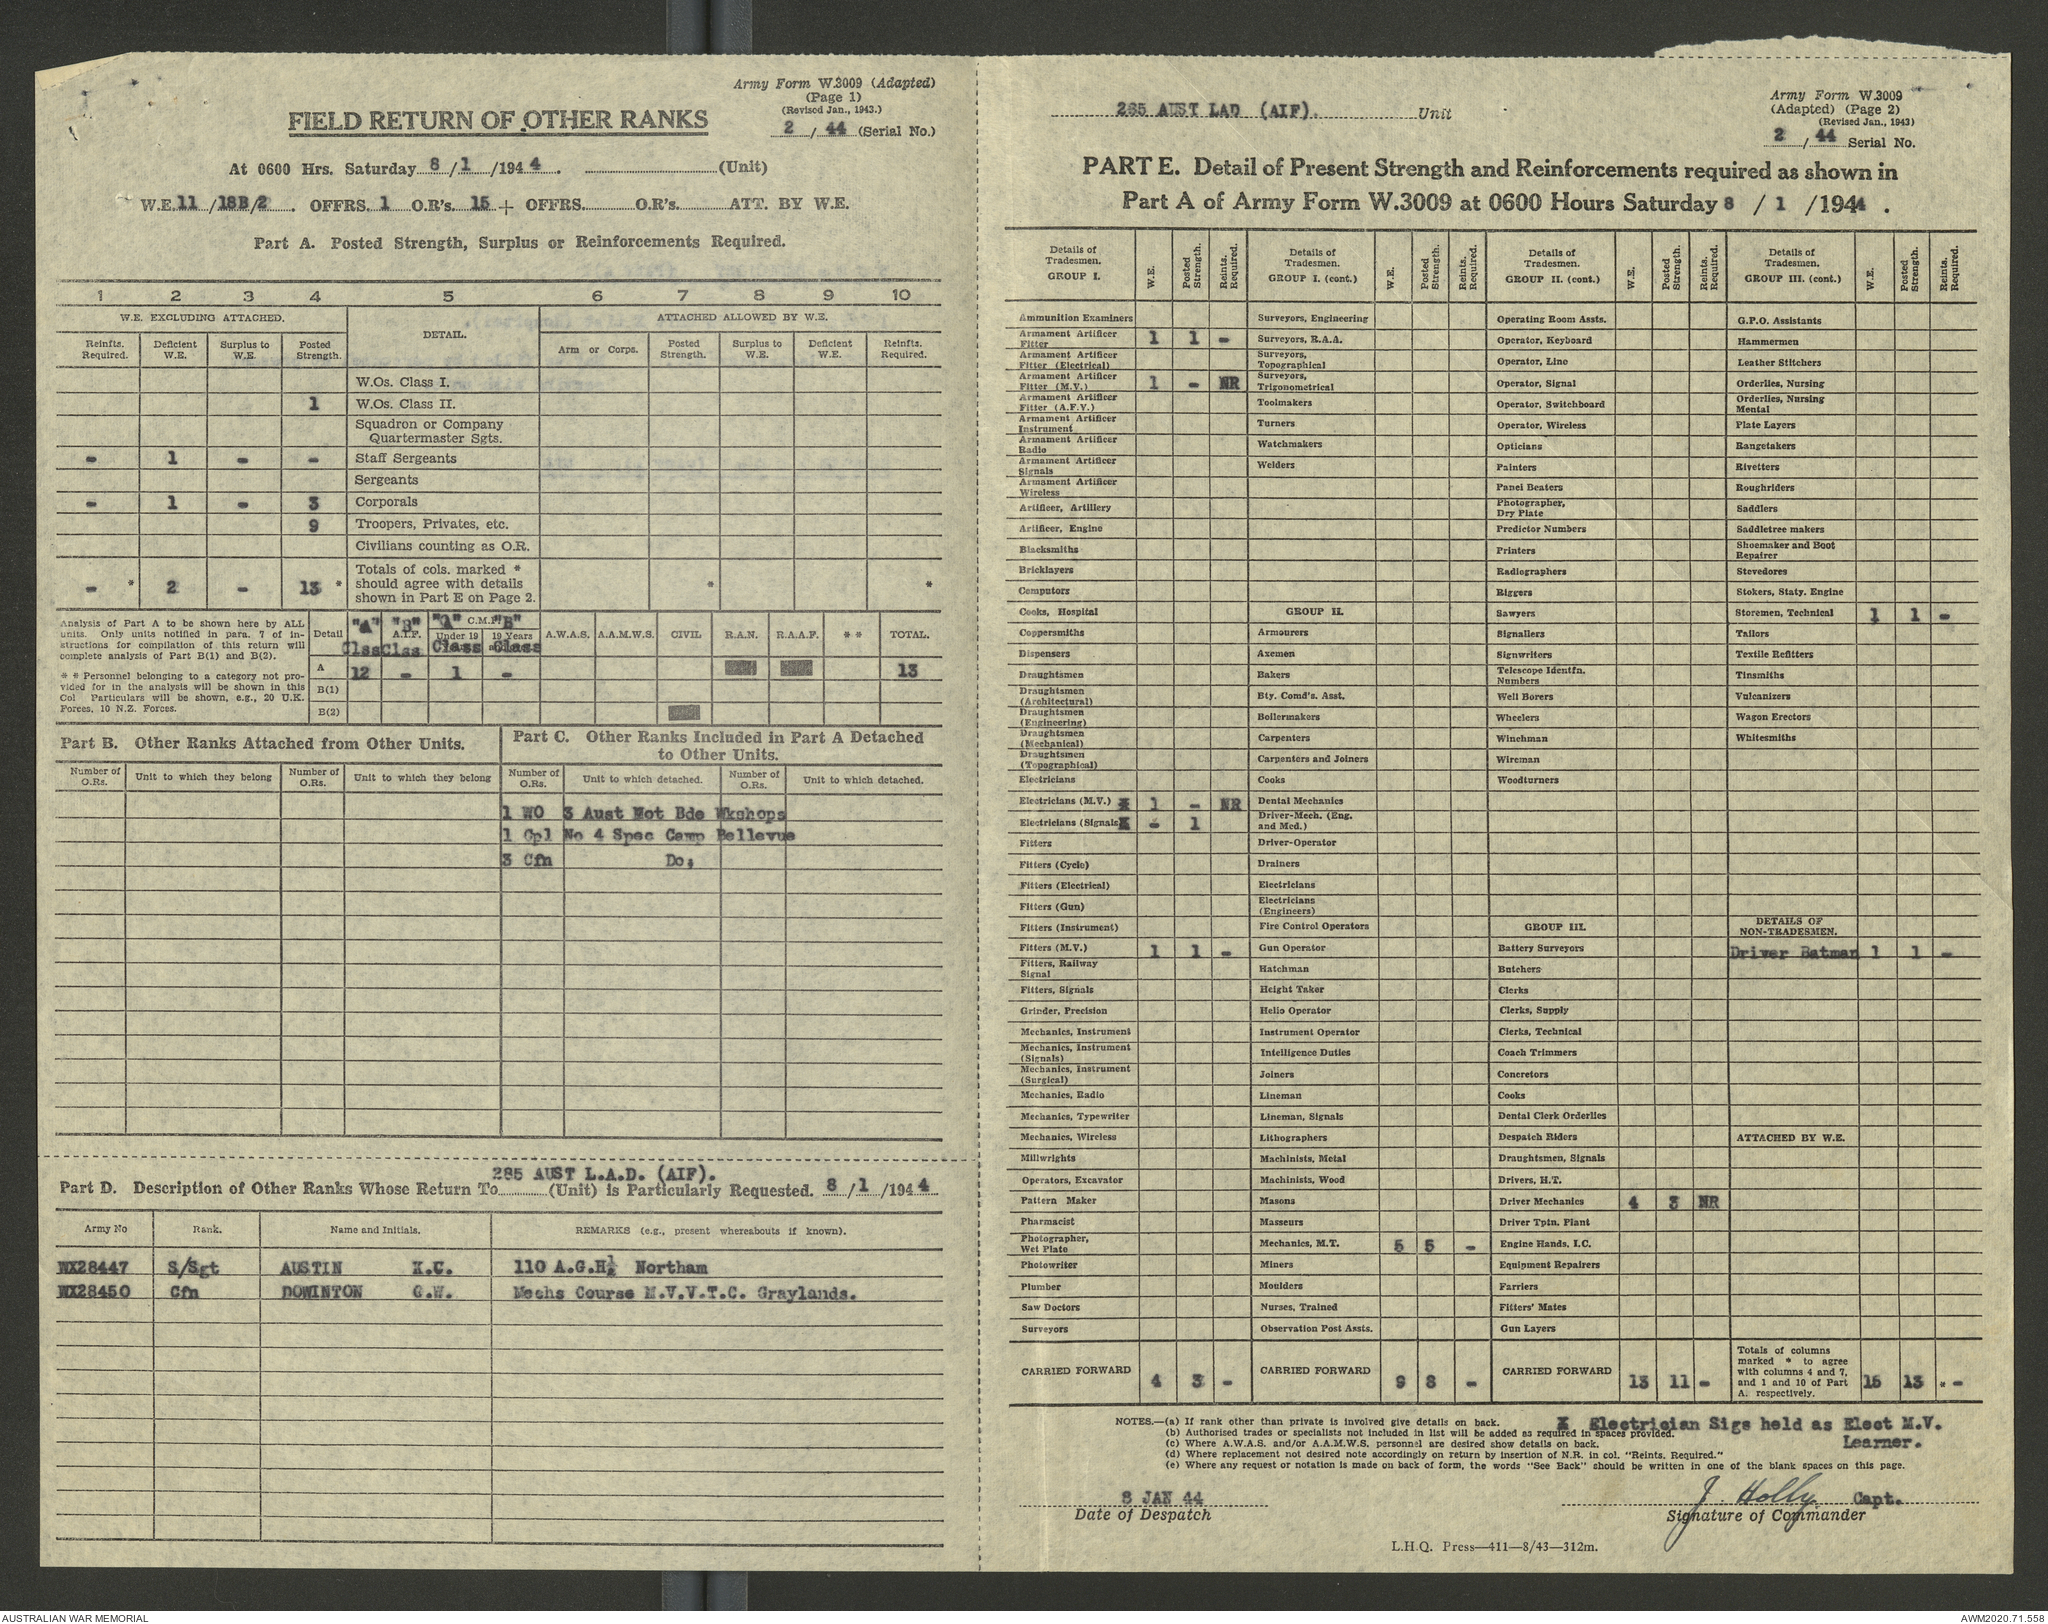 Army Form W.3009 (Adapted)
(Page 1)
(Revised Jan., 1943.)
2 / 44 (Serial No.)
FIELD RETURN OF OTHER RANKS
At 0600 Hrs. Saturday 8 / 1 / 194 4 . (Unit)
W.E. 11 / 18B/2 . OFFRS. 1 O.R's. 15 + OFFRS. O.R's. ATT. BY W.E.
Part A. Posted Strength, Surplus or Reinforcements Required.
1 2 3 4 5 6 7 8 9 10
W.E. EXCLUDING ATTACHED. DETAIL. ATTACHED ALLOWED BY W.E.
Reinfts. Required. Deficient W.E. Surplus to W.E. Posted Strength. Arm or Corps. Posted Strength. Surplus to W.E. Deficient W.E. Reinfts. Required.
W.Os. Class I.
1 W.Os. Class II.
Squadron or Company
Quartermaster Sgts.
- 1 - - Staff Sergeants
Sergeants
- 1 - 3 Corporals
9 Troopers, Privates, etc.
Civilians counting as O.R.
Totals of cols. marked *
- * 2 - 13 * should agree with details * *
shown in Part E on Page 2.
Analysis of Part A to be shown here by ALL
units. Only units notified in para. 7 of in-
structions for compilation of this return will
complete analysis of Part B(1) and B(2).
* * Personnel belonging to a category not pro-
vided for in the analysis will be shown in this
Col Particulars will be shown, e.g., 20 U.K.
Forces, 10 N.Z. Forces.
"A" "B" "A" C.M.F. "B"
Detail A.I.F. Under 19 19 Years A.W.A.S. A.A.M.W.S. CIVIL R.A.N. R.A.A.F. * * TOTAL.
Clss Clss Class Class
A 12 - 1 - 13
B(1)
B(2)
Part B. Other Ranks Attached from Other Units.
Part C. Other Ranks Included in Part A Detached
to Other Units.
Number of O.Rs. Unit to which they belong Number of O.Rs. Unit to which they belong Number of O.Rs. Unit to which detached. Number of O.Rs. Unit to which detached.
1 WO 3 Aust Mot Bde Wkshops
1 Cpl No 4 Spec Camp Bellevue
3 Cfn Do.
285 AUST L.A.D. (AIF).
Part D. Description of Other Ranks Whose Return To (Unit) is Particularly Requested. 8 / 1 / 194 4
Army No Rank. Name and Initials. REMARKS (e.g., present whereabouts if known).
WX28447 S/Sgt AUSTIN K.C. 110 A.G.H. Northam
WX28450 Cfn DOWINTON G.W. Mechs Course M.V.V.T.C. Graylands.
285 AUST LAD (AIF). Unit
Army Form W.3009
(Adapted) (Page 2)
(Revised Jan., 1943)
2 / 44 Serial No.
PART E. Detail of Present Strength and Reinforcements required as shown in
Part A of Army Form W.3009 at 0600 Hours Saturday 8 / 1 / 1944 .
Details of Tradesmen. GROUP I. W.E. Posted Strength. Reints. Required.
Ammunition Examiners
Armament Artificer Fitter 1 1 -
Armament Artificer Fitter (Electrical)
Armament Artificer Fitter (M.V.) 1 - NR
Armament Artificer Fitter (A.F.V.)
Armament Artificer Instrument
Armament Artificer Radio
Armament Artificer Signals
Armament Artificer Wireless
Artificer, Artillery
Artificer, Engine
Blacksmiths
Bricklayers
Computors
Cooks, Hospital
Coppersmiths
Dispensers
Draughtsmen
Draughtsmen (Architectural)
Draughtsmen (Engineering)
Draughtsmen (Mechanical)
Draughtsmen (Topographical)
Electricians
Electricians (M.V.) X 1 - NR
Electricians (Signals X - 1
Fitters
Fitters (Cycle)
Fitters (Electrical)
Fitters (Gun)
Fitters (Instrument)
Fitters (M.V.) 1 1 -
Fitters, Railway Signal
Fitters, Signals
Grinder, Precision
Mechanics, Instrument
Mechanics, Instrument (Signals)
Mechanics, Instrument (Surgical)
Mechanics, Radio
Mechanics, Typewriter
Mechanics, Wireless
Millwrights
Operators, Excavator
Pattern Maker
Pharmacist
Photographer, Wet Plate
Photowriter
Plumber
Saw Doctors
Surveyors
CARRIED FORWARD 4 3 -
Details of Tradesmen. GROUP I. (cont.) W.E. Posted Strength. Reints. Required.
Surveyors, Engineering
Surveyors, R.A.A.
Surveyors, Topographical
Surveyors, Trigonometrical
Toolmakers
Turners
Watchmakers
Welders
GROUP II.
Armourers
Axemen
Bakers
Bty. Comd's. Asst.
Boilermakers
Carpenters
Carpenters and Joiners
Cooks
Dental Mechanics
Driver-Mech. (Eng. and Med.)
Driver-Operator
Drainers
Electricians
Electricians (Engineers)
Fire Control Operators
Gun Operator
Hatchman
Height Taker
Helio Operator
Instrument Operator
Intelligence Duties
Joiners
Lineman
Lineman, Signals
Lithographers
Machinists, Metal
Machinists, Wood
Masons
Masseurs
Mechanics, M.T. 5 5 -
Miners
Moulders
Nurses, Trained
Observation Post Assts.
CARRIED FORWARD 9 8 -
Details of Tradesmen. GROUP II. (cont.) W.E. Posted Strength. Reints. Required.
Operating Room Assts.
Operator, Keyboard
Operator, Line
Operator, Signal
Operator, Switchboard
Operator, Wireless
Opticians
Painters
Panel Beaters
Photographer, Dry Plate
Predictor Numbers
Printers
Radiographers
Riggers
Sawyers
Signallers
Signwriters
Telescope Identfn. Numbers
Well Borers
Wheelers
Winchman
Wireman
Woodturners
GROUP III.
Battery Surveyors
Butchers
Clerks
Clerks, Supply
Clerks, Technical
Coach Trimmers
Concretors
Cooks
Dental Clerk Orderlies
Despatch Riders
Draughtsmen, Signals
Drivers, H.T.
Driver Mechanics 4 3 NR
Driver Tptn. Plant
Engine Hands, I.C.
Equipment Repairers
Farriers
Fitters' Mates
Gun Layers
CARRIED FORWARD 13 11 -
Details of Tradesmen. GROUP III. (cont.) W.E. Posted Strength. Reints. Required.
G.P.O. Assistants
Hammermen
Leather Stitchers
Orderlies, Nursing
Orderlies, Nursing Mental
Plate Layers
Rangetakers
Rivetters
Roughriders
Saddlers
Saddletree makers
Shoemaker and Boot Repairer
Stevedores
Stokers, Staty. Engine
Storemen, Technical 1 1 -
Tailors
Textile Refitters
Tinsmiths
Vulcanizers
Wagon Erectors
Whitesmiths
DETAILS OF NON-TRADESMEN.
Driver Batman 1 1 -
ATTACHED BY W.E.
Totals of columns
marked * to agree
with columns 4 and 7,
and 1 and 10 of Part
A. respectively. 15 13 * -
NOTES.—(a) If rank other than private is involved give details on back.
(b) Authorised trades or specialists not included in list will be added as required in spaces provided.
(c) Where A.W.A.S. and/or A.A.M.W.S. personnel are desired show details on back.
(d) Where replacement not desired note accordingly on return by insertion of N.R. in col. "Reints. Required."
(e) Where any request or notation is made on back of form, the words "See Back" should be written in one of the blank spaces on this page.
X Electrician Sigs held as Elect M.V.
Learner.
8 JAN 44
Date of Despatch
J Holly Capt.
Signature of Commander
L.H.Q. Press—411—8/43—312m.
AUSTRALIAN WAR MEMORIAL
AWM2020.71.558